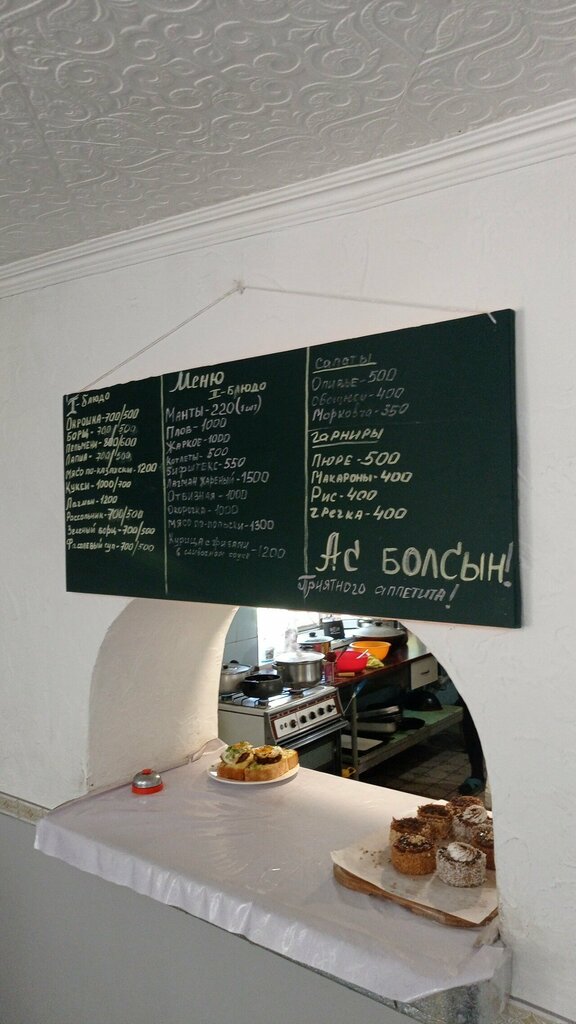 I-блюдо
Окрошка-700/500
Борщ-700/500
Пельмени-800/600
Лапша-700/500
Мясо по-казахски-1200
Кукси-1000/700
Лагман-1200
Рассольник-700/500
Зелёный борщ-700/500
Фасолевый суп-700/500
Меню
II-блюдо
Манты-220(1шт)
Плов-1000
Жаркое-1000
Котлеты-500
Бифштекс-550
Лагман жареный-1500
Отбивная-1000
Окорочка-1000
Мясо по-польски-1300
Курица с грибами
в сливочном соусе-1200
Салаты
Оливье-500
Овощной-400
Морковча-350
Гарниры
Пюре-500
Макароны-400
Рис-400
Гречка-400
Ас болсын!
Приятного аппетита!